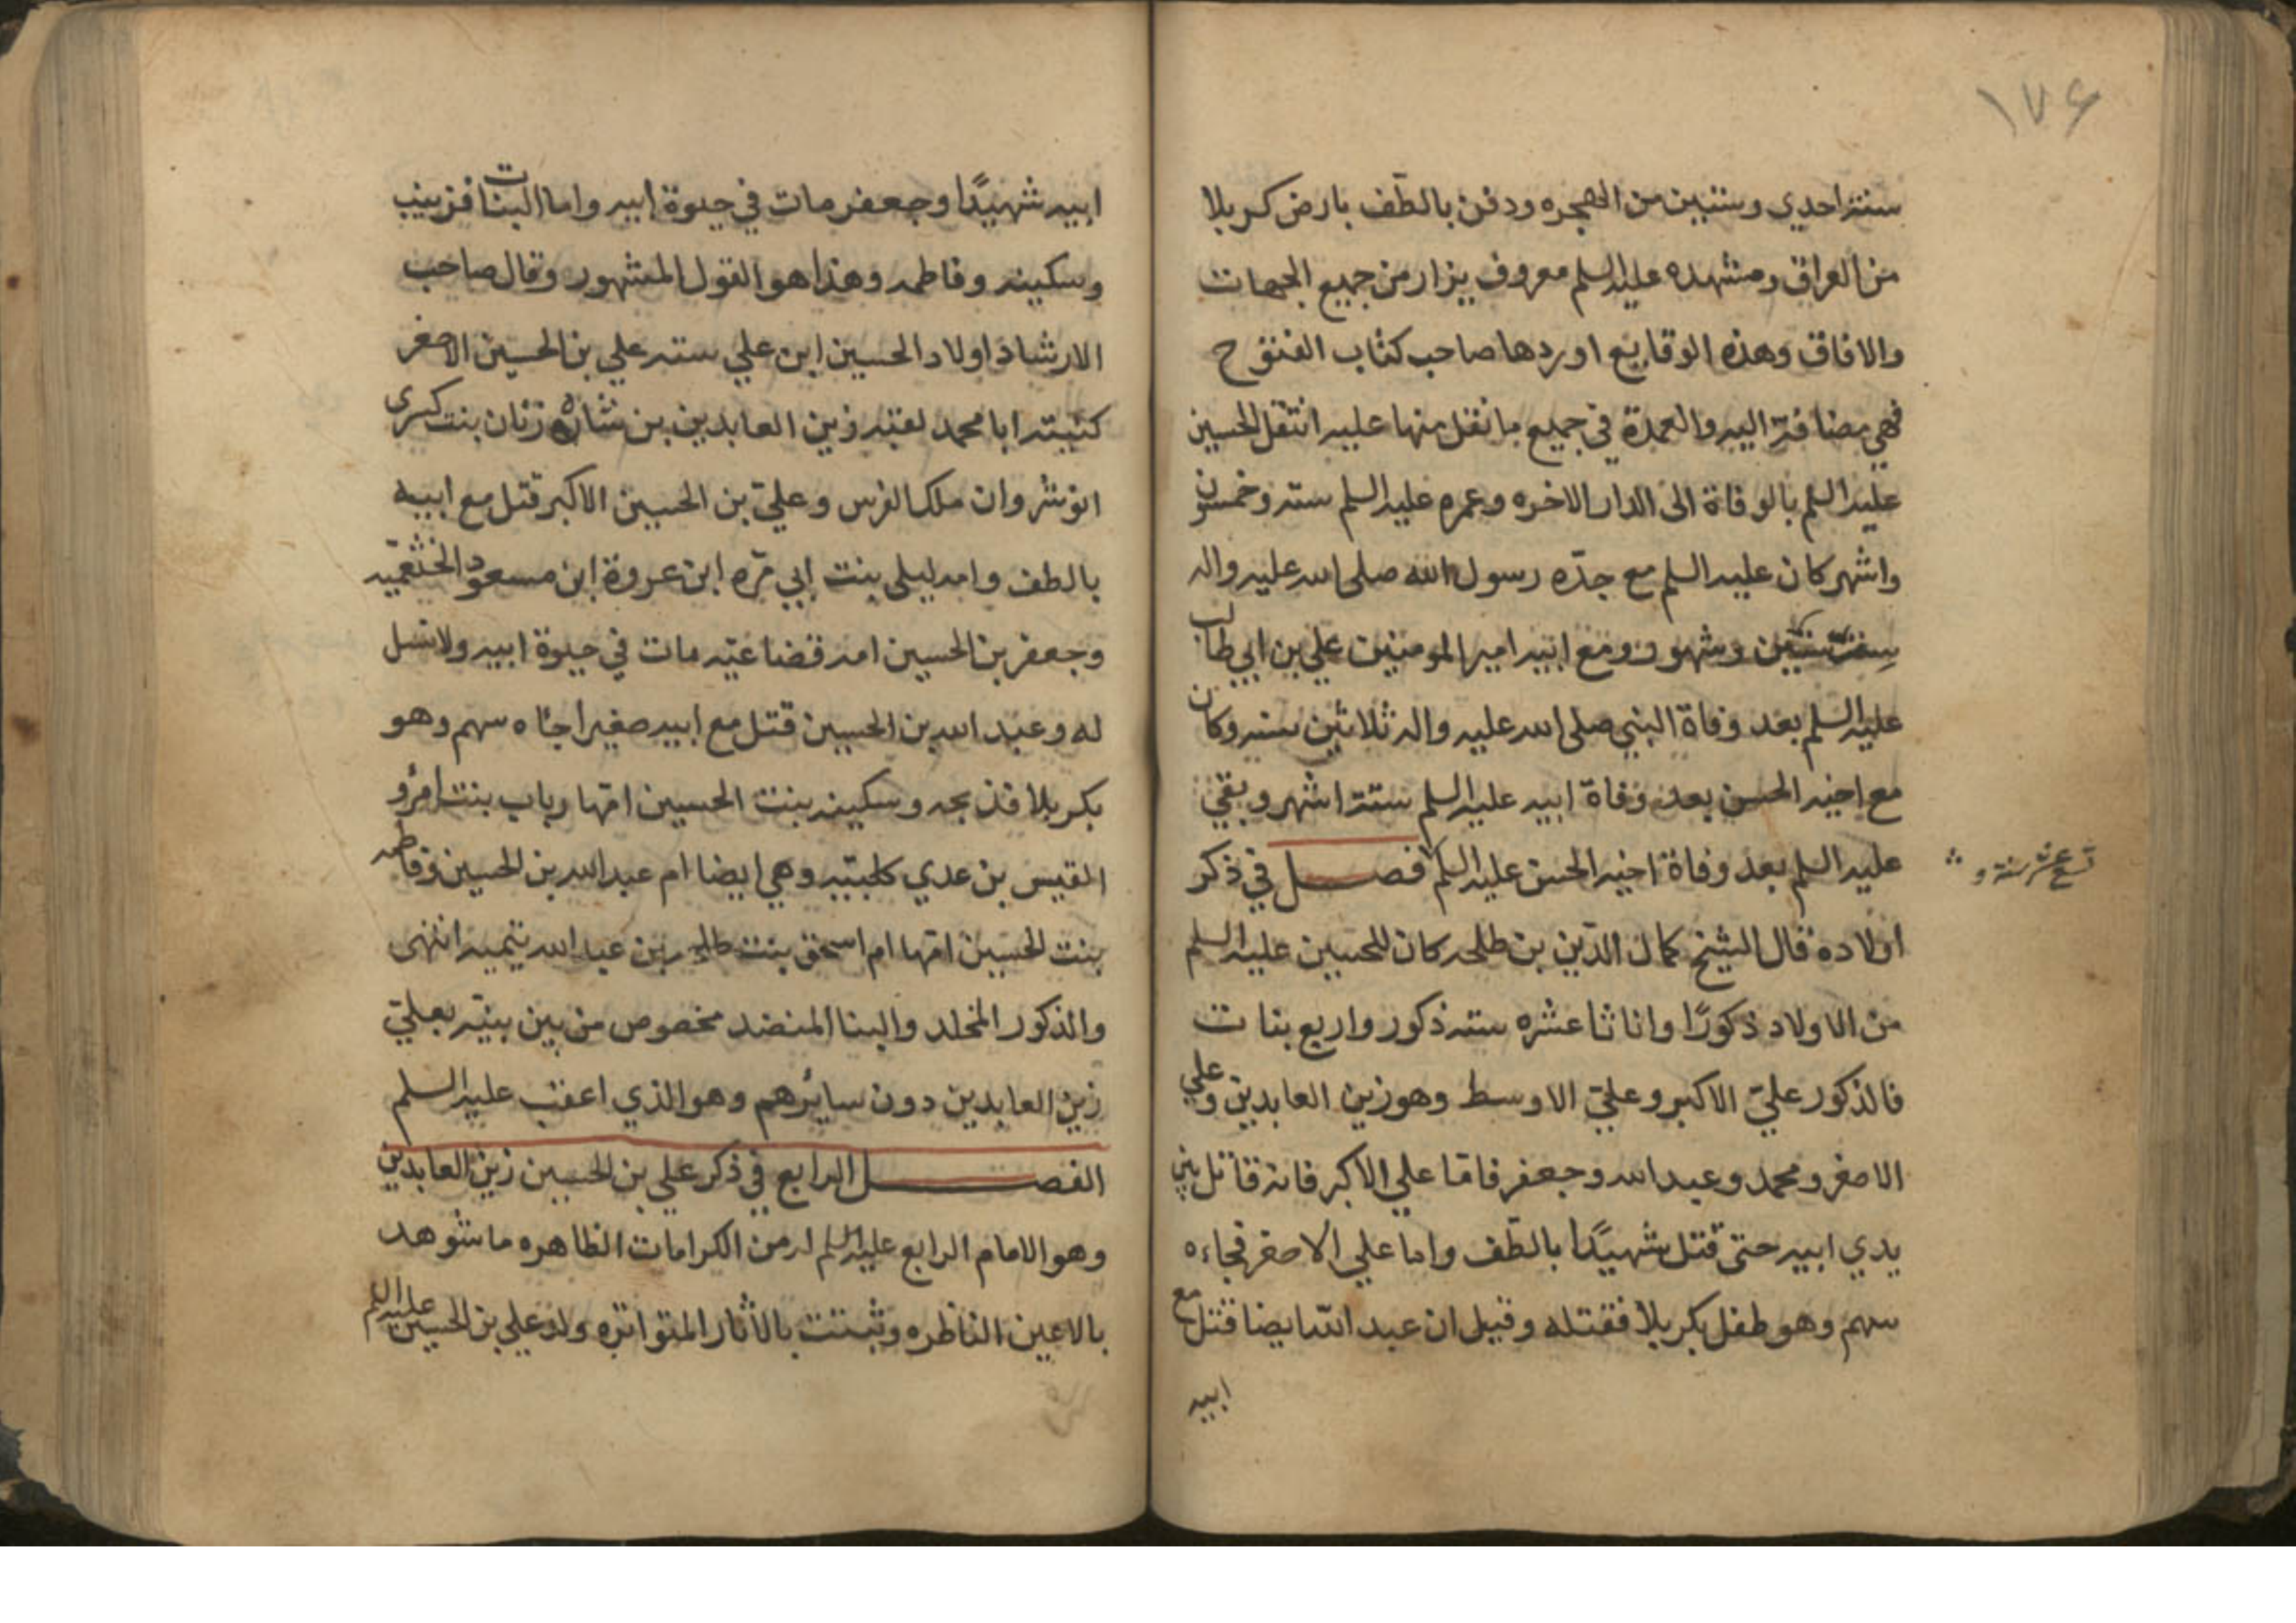 ١٧٤
سنة احدي وستين من الهجره ودفن بالطّف بارض كربلا
من العراق ومشهده عليه السلم معروف يزار من جميع الجهات
والافاق وهذه الوقايع اوردها صاحب كتاب الفتوح
فهي مضافة اليه والعهدة في جميع ما نقل منها عليه انتقل الحسين
عليه السلم بالوفاة الى الدار الاخره وعمره عليه السلم ستة وخمسون
واشهر كان عليه السلم مع جدّه رسول الله صلى الله عليه واله
سنين وشهور ومع ابيه امير المومنين علي بن ابي طالب
عليه السلم بعد وفاة النبي صلى الله عليه واله ثلاثين سنه وكان
مع اخيه الحسن بعد وفاة ابيه عليه السلم ستة اشهر وبقي
عليه السلم بعد وفاة اخيه الحسن عليه السلم فصل في ذكر
تسع عشر سنة و
اولاده قال الشيخ كمال الدّين بن طلحه كان للحسين عليه السلم
من الاولاد ذكورًا واناثا عشره سته ذكور واربع بنات
فالذكور عليّ الاكبر وعليّ الاوسط وهو زين العابدين وعلي
الاصغر ومحمد وعبد الله وجعفر فاما علي الاكبر فانه قاتل بين
يدي ابيه حتى قتل شهيدًا بالطّف واما علي الاصغر فجاءه
سهم وهو طفل بكربلا فقتله وقيل ان عبد الله ايضا قتل مع
ابيه
ابيه شهيدًا وجعفر مات في حيوة ابيه واما البنات فزينب
وسكينه وفاطمه وهذا هو القول المشهور وقال صاحب
الارشاد اولاد الحسين ابن علي سته علي بن الحسين الاصغر
كنيته ابا محمد لقبه زين العابدين بن شاه زنان بنت كسرى
انوشروان ملك الفرس وعليّ بن الحسين الاكبر قتل مع ابيه
بالطف وامه ليلى بنت ابي مرّه ابن عروة ابن مسعود الخثعميه
وجعفر بن الحسين امه قضاعيّه مات في حيوة ابيه ولا نسل
له وعبد الله بن الحسين قتل مع ابيه صغيرا جاه سهم وهو
بكربلا فذبحه وسكينه بنت الحسين امّها رباب بنت امرؤ
القيس بن عدي كلبيّه وهي ايضا ام عبد الله بن الحسين وفاطمه
بنت الحسين امّها ام اسحق بنت طلحه بن عبد الله تيميه انتهى
والذكور المخلد والبنا المنضد مخصوص من بين بنيّه بعليّ
زين العابدين دون سائرهم وهو الذي اعقب عليه السلم
الفصل الرابع في ذكر علي بن الحسين زين العابدين
وهو الامام الرابع عليه السلم له من الكرامات الظاهره ما شوهد
بالاعين الناظره وثبتت بالأثار المتواتره ولد علي بن الحسين عليه السلم